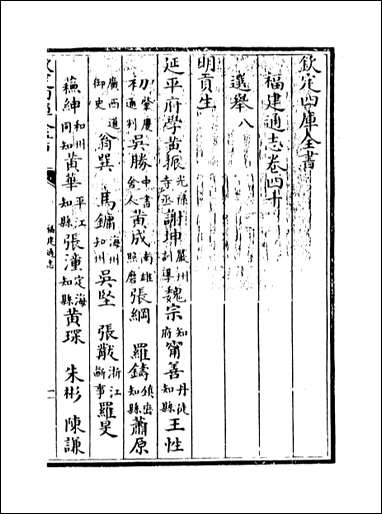 欽定四庫全書
福建通志卷四十
選舉八
明貢生
延平府學黃振光祿寺丞謝坤嚴州訓導魏宗知府甯善丹徒知縣王性
刀肇慶通判吳勝中書舍人黃成南雄照磨張綱 羅鑄知縣蕭原
廣西道御史翁巽 馬鏞海州知州吳堅 張戭浙江僉事羅旻
蘓紳和州同知黄華平江知縣張潼定海知縣黄琛 朱彬 陳謙
福建通志